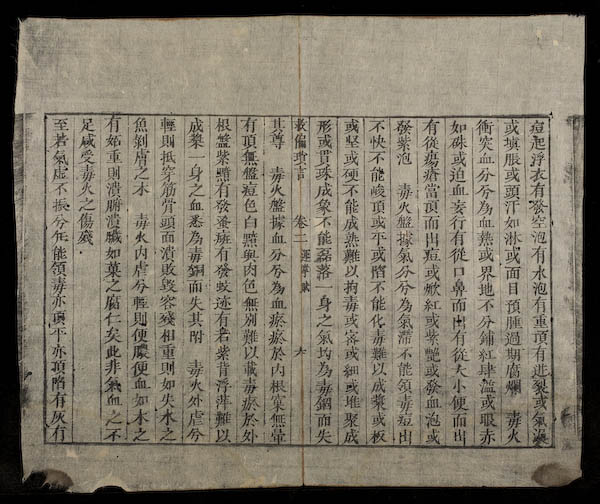 痘起浮衣有發空泡有水泡有重頂有迸裂或氣滿
或塡脹或頭汗如淋或面目預腫過期腐爛　毒火
衝突血分兮爲血熱或界地不分鋪紅肆溢或眼赤
如硃或迫血妄行有從口鼻而出有從大小便而出
有從瘍瘡當頂而出痘或焮紅或紫艷或發血泡或
發紫泡　毒火盤據氣分兮爲氣滯不能領毒痘出
不快不能峻頂或平或陷不能化毒難以成漿或板
或堅或硬不能成熟難以拘毒或密或細或堆聚成
形或貫珠成象不能磊落一身之氣均爲毒錮而失
救偏瑣言　卷二　六
其尊　毒火盤據血分兮爲血瘀瘀於內根窠無暈
有頂無盤痘色白黯與肉色無別難以載毒瘀於外
根盤紫黯有發蚤斑有發蚊迹有若紫背浮萍難以
成漿一身之血悉爲毒錮而失其附　毒火外虐兮
輕則抵穿筋骨頭面潰敗毀容殘相重則如失水之
魚剝膚之木　毒火內虐兮輕則便膿便血如木之
有蛀重則潰膓潰臟如菓之腐仁矣此非氣血之不
足咸受毒火之傷殘
至若氣虛不振兮焉能領毒亦頂平亦頂陷有灰有